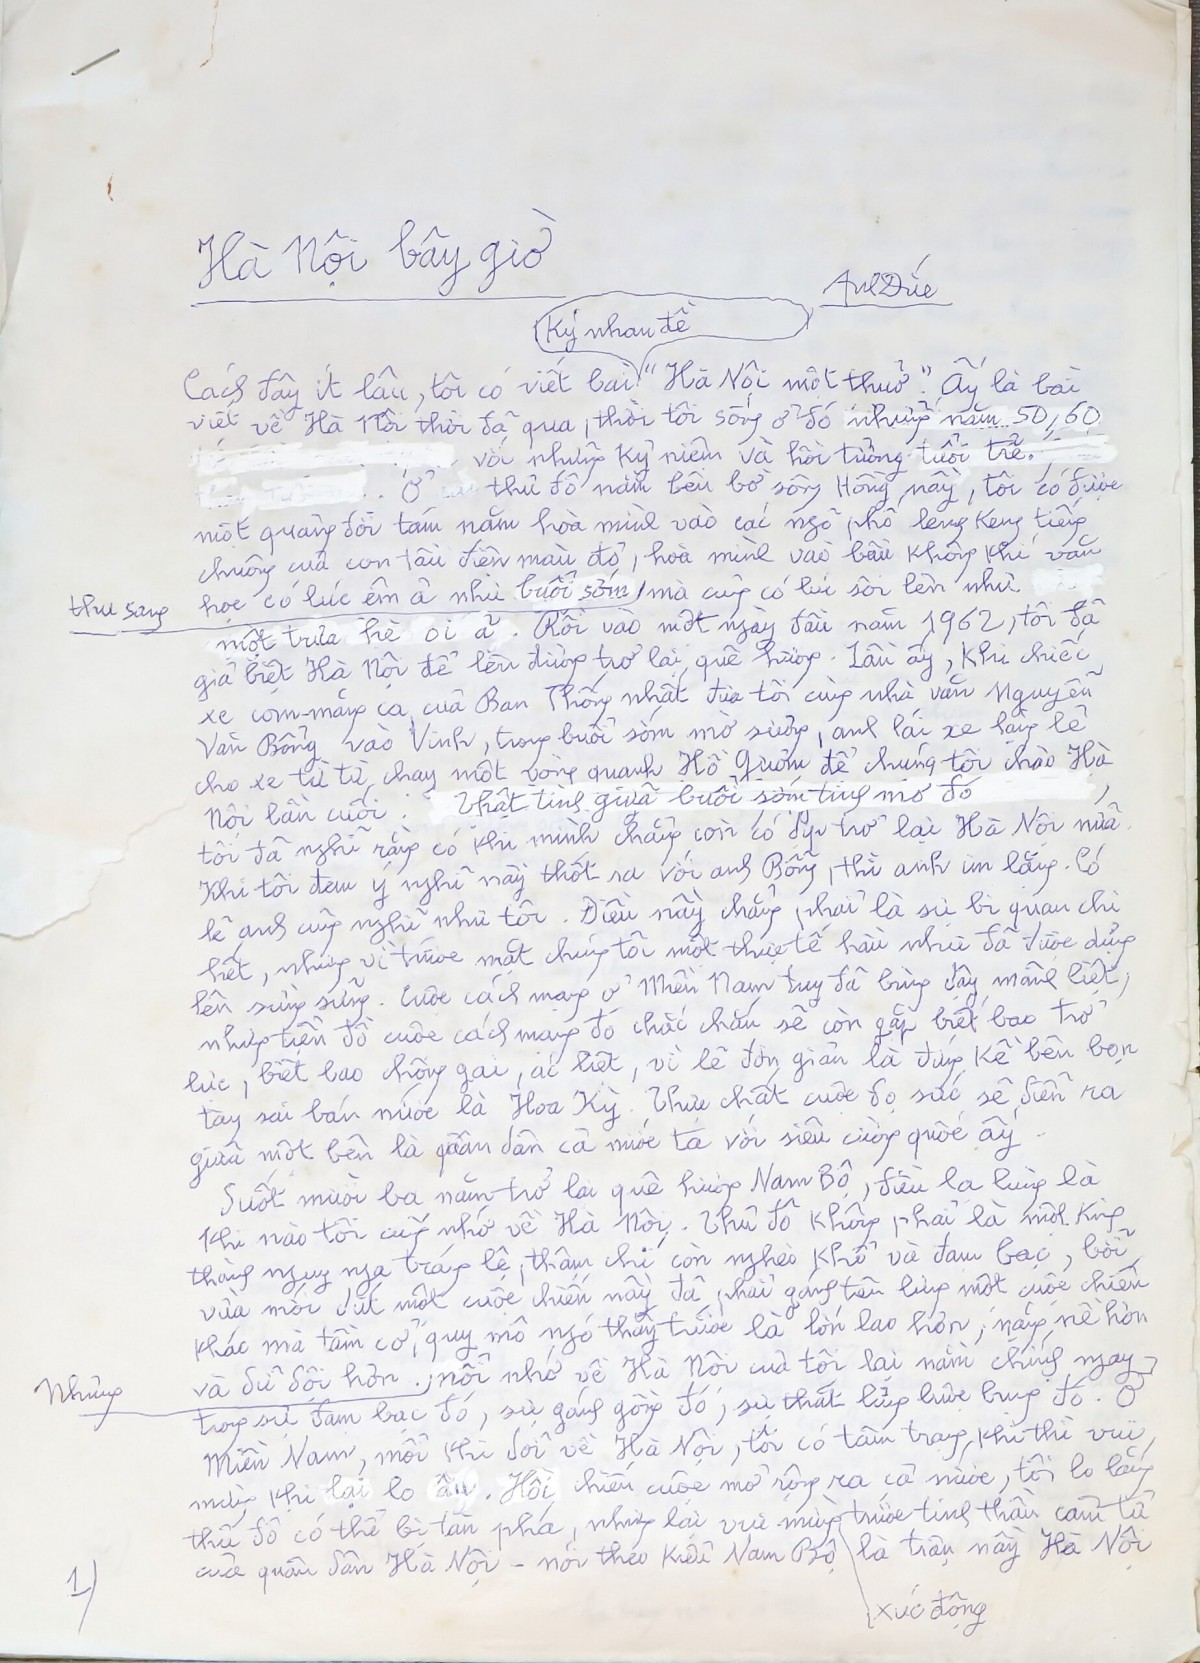 Hà Nội bây giờ
Anh Đức
Ký nhan đề
Cách đây ít lâu, tôi có viết bài "Hà Nội một thuở". Ấy là bài
viết về Hà Nội thời đã qua, thời tôi sống ở đó những năm 50, 60
với những kỷ niệm và hồi tưởng tuổi trẻ.
Ở thủ đô nằm bên bờ sông Hồng nầy, tôi có được
một quãng đời tám năm hoà mình vào các ngõ phố leng keng tiếng
chuông của con tàu điện màu đỏ, hoà mình vào bầu không khí văn
học có lúc êm ả như buổi sớm, mà cũng có lúc sôi lên như
thu sang
một trưa hè oi ả. Rồi vào một ngày đầu năm 1962, tôi đã
giã biệt Hà Nội để lên đường trở lại quê hương. Lần ấy, khi chiếc
xe com-măng ca của Ban Thống nhất đưa tôi cùng nhà văn Nguyễn
Văn Bổng vào Vinh, trong buổi sớm mờ sương, anh lái xe lặng lẽ
cho xe từ từ chạy một vòng quanh Hồ Gươm để chúng tôi chào Hà
Nội lần cuối. Thật tình giữa buổi sớm tinh mơ đó,
tôi đã nghĩ rằng có khi mình chẳng còn có dịp trở lại Hà Nội nữa.
Khi tôi đem ý nghĩ nầy thốt ra với anh Bổng, thì anh im lặng. Có
lẽ anh cũng nghĩ như tôi. Điều nầy chẳng phải là sự bi quan chi
hết, nhưng vì trước mặt chúng tôi một thực tế hầu như đã được dựng
lên sừng sững. Cuộc cách mạng ở Miền Nam tuy đã bùng dậy mãnh liệt,
nhưng tiền đồ cuộc cách mạng đó chắc chắn sẽ còn gặp biết bao trở
lực, biết bao chông gai, ác liệt, vì lẽ đơn giản là đứng kề bên bọn
tay sai bán nước là Hoa Kỳ. Thực chất cuộc đọ sức sẽ diễn ra
giữa một bên là quân dân cả nước ta với siêu cường quốc ấy.
Suốt mười ba năm trở lại quê hương Nam Bộ, điều lạ lùng là
khi nào tôi cũng nhớ về Hà Nội. Thủ đô không phải là một kinh
thành nguy nga tráng lệ, thậm chí còn nghèo khổ và đạm bạc, bởi
vừa mới dứt một cuộc chiến nầy đã phải gánh trên lưng một cuộc chiến
khác mà tầm cỡ, quy mô ngó thấy trước là lớn lao hơn, nặng nề hơn
và dữ dội hơn. nỗi nhớ về Hà Nội của tôi lại nằm chính ngay
Nhưng
trong sự đạm bạc đó, sự gánh gồng đó, sự thắt lưng buộc bụng đó. Ở
Miền Nam, mỗi khi dõi về Hà Nội, tôi có tâm trạng khi thì vui
mừng khi lại lo âu. Hồi chiến cuộc mở rộng ra cả nước, tôi lo lắng
thủ đô có thể bị tàn phá, nhưng lại vui mừng trước tinh thần cảm tử
của quân dân Hà Nội - nói theo kiểu Nam Bộ là trận nầy Hà Nội
xúc động
1)